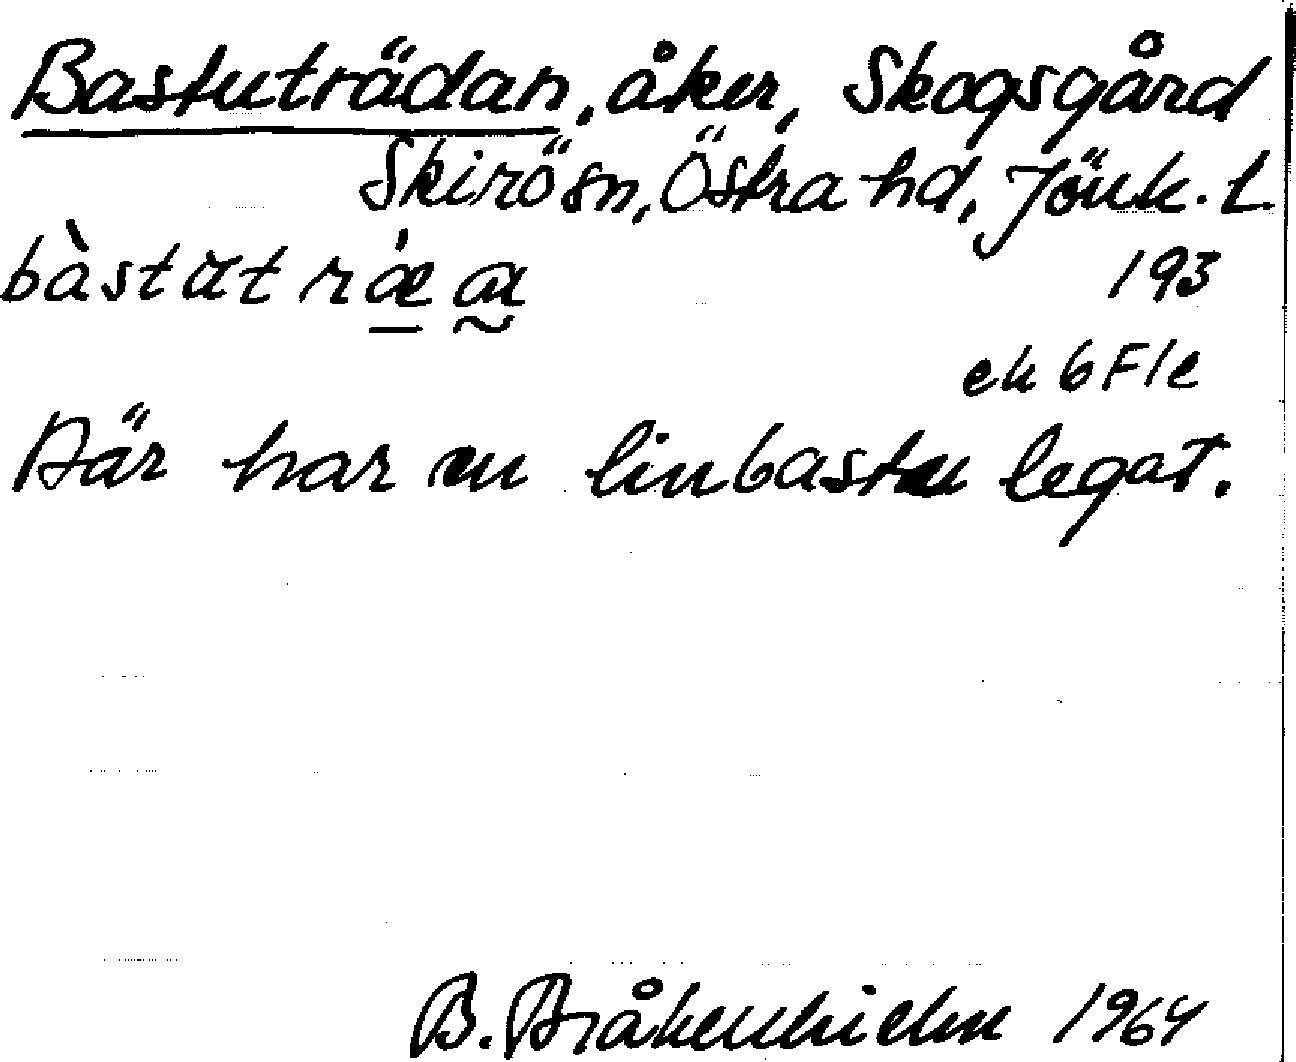 Bastuträdan, åker, Skogsgård
Skirö sn, Östra hd, Jönk. L.
193
ek 6 F 1 e
Där har en linbastu legat.
B. Bråkenhielm 1964